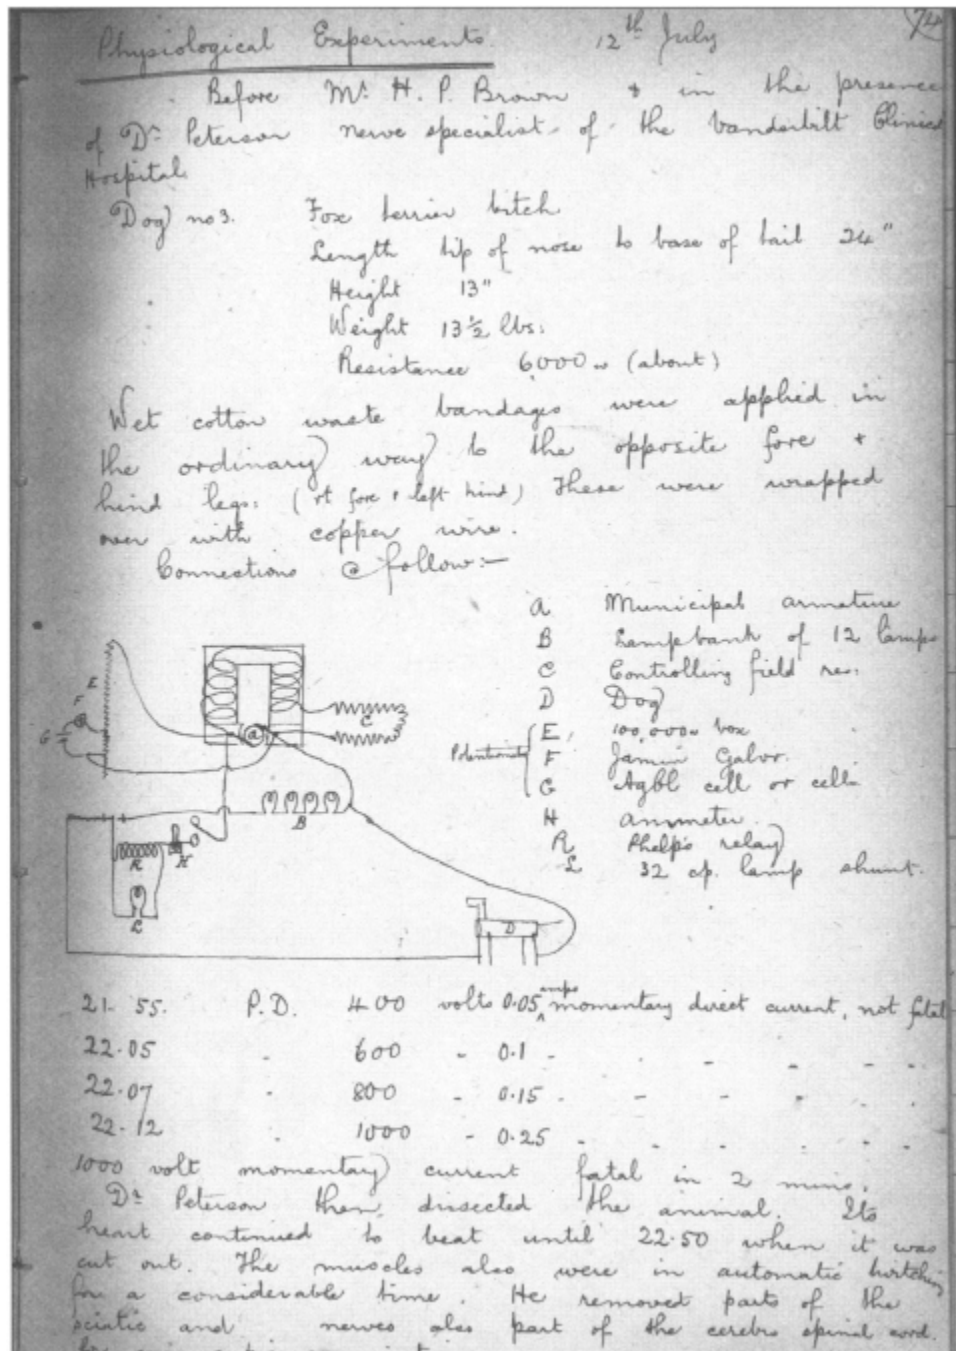 74
Physiological Experiments. 12th July
Before Mr. H. P. Brown & in the presence
of Dr. Peterson nerve specialist of the Vanderbilt Clinical
Hospital.
Dog no 3. Fox terrier bitch
Length tip of nose to base of tail 24"
Height 13"
Weight 13½ lbs.
Resistance 6000 ω (about)
Wet cotton waste bandages were applied in
the ordinary way to the opposite fore &
hind legs. (rt fore & left hind) These were wrapped
over with copper wire.
Connections follow:—
a Municipal armature
B Lampbank of 12 lamps
C Controlling field res:
D Dog
E 100,000 ω box
Potentiometer
F Jamin Galvr.
G AgCl cell or cells
H ammeter.
R Phelps relay
L 32 cp. lamp shunt.
E
F
G
a
C
B
R
H
L
D
21.55. P.D. 400 volts 0.05 amps momentary direct current, not fatal
22.05 " 600 " 0.1 " " " " "
22.07 " 800 " 0.15 " " " " "
22.12 " 1000 " 0.25 " " " " "
1000 volt momentary current fatal in 2 mins.
Dr. Peterson then dissected the animal. Its
heart continued to beat until 22.50 when it was
cut out. The muscles also were in automatic twitching
for a considerable time. He removed parts of the
sciatic and nerves also part of the cerebro spinal cord.